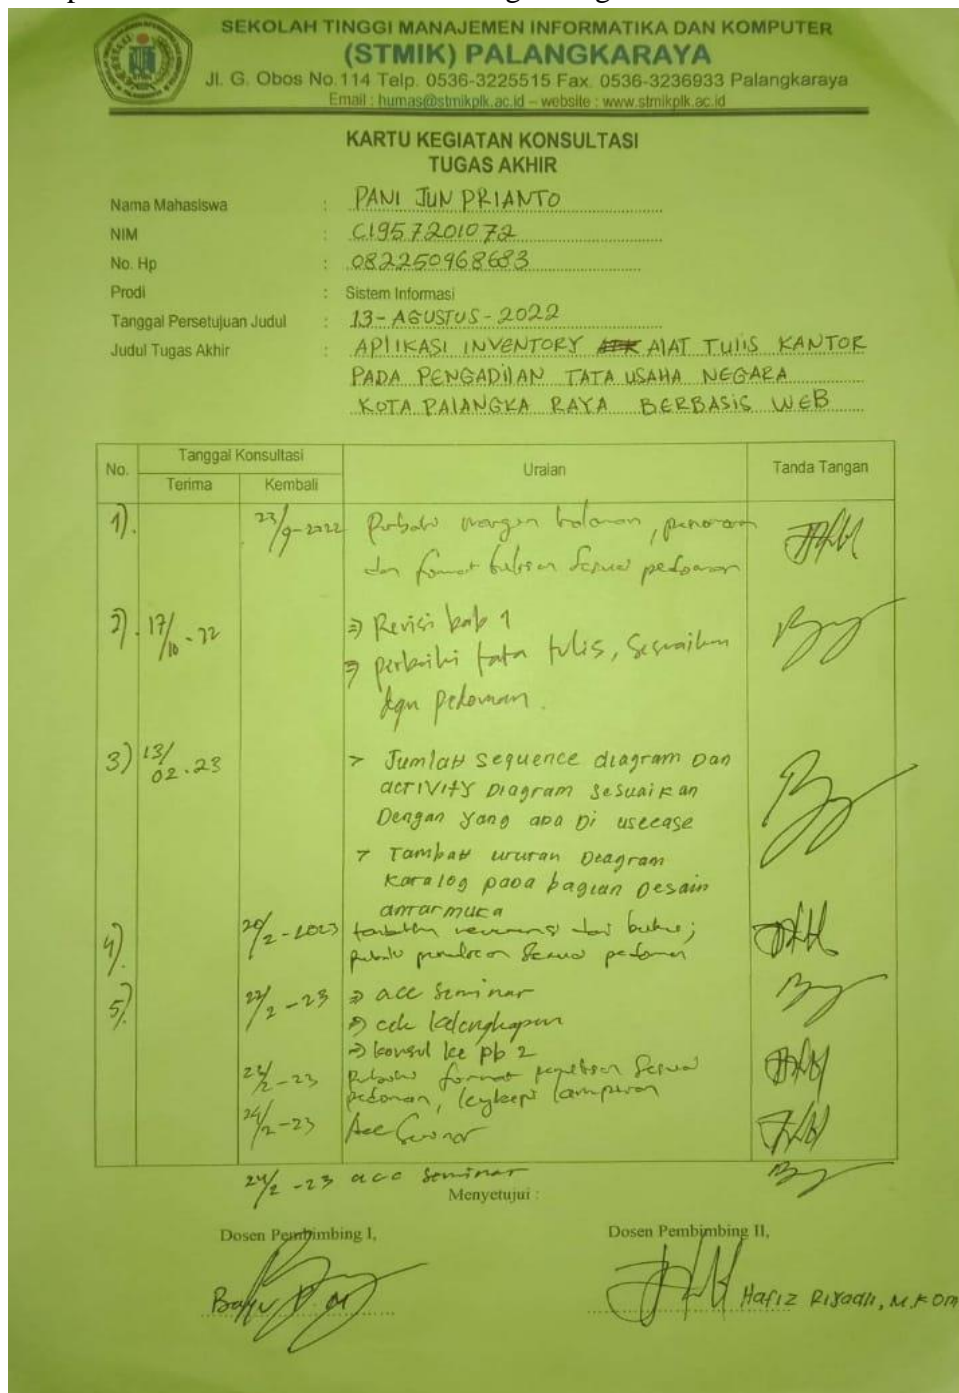 SEKOLAH TINGGI MANAJEMEN INFORMATIKA DAN KOMPUTER
(STMIK) PALANGKARAYA
Jl. G. Obos No.114 Telp. 0536-3225515 Fax. 0536-3236933 Palangkaraya
Email : humas@stmikplk.ac.id – website : www.stmikplk.ac.id
KARTU KEGIATAN KONSULTASI
TUGAS AKHIR
Nama Mahasiswa : PANI JUN PRIANTO
NIM : C1957201072
No. Hp : 082250968683
Prodi : Sistem Informasi
Tanggal Persetujuan Judul : 13-AGUSTUS-2022
Judul Tugas Akhir : APlIKASI INVENTORY AlAT TUlIS KANTOR
PADA PENGADIlAN TATA USAHA NEGARA
KOTA PAlANGKA RAYA BERBASIS WEB
No. Tanggal Konsultasi Uraian Tanda Tangan
Terima Kembali
1). 23/9-2022 margin halaman,
dan format tulisan sesuai pedoman
2). 17/10-22 => Revisi bab 1
=> perbaiki tata tulis, sesuaikan
dgn pedoman.
3) 13/02.23 > Jumlah sequence diagram Dan
activity Diagram sesuaikan
Dengan yang ada Di usecase
> Tambah ururan Diagram
Katalog pada bagian Desain
antarmuka
4). 20/2-2023 dari buku;
sesuai pedoman
5). 22/2-23 => acc seminar
=> cek kelengkapan
=> konsul ke pb 2
-23 format sesuai
pedoman, lengkapi lampiran
24/2-23 Acc Seminar
24/2-23 acc seminar
Menyetujui :
Dosen Pembimbing I, Dosen Pembimbing II,
Hafiz Riyadli, M.Kom